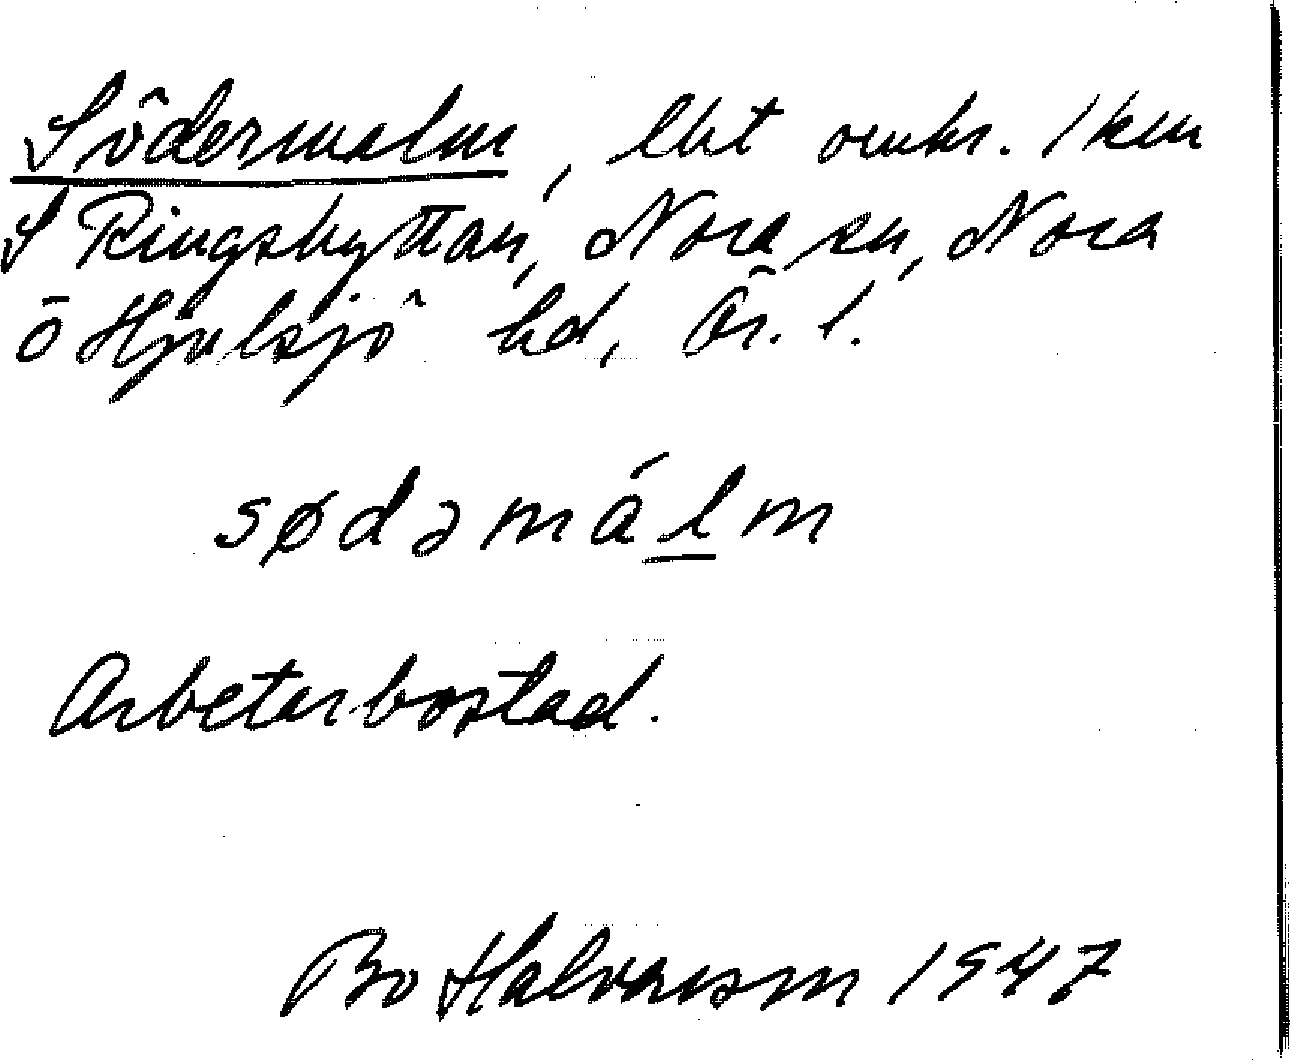 Södermalm, lht omkr. 1 km
S Ringshyttan, Nora sn, Nora
o Hjulsjö hd, Ör. l.
sødəmálm
Arbetarbostad.
Bo Halvarson 1947